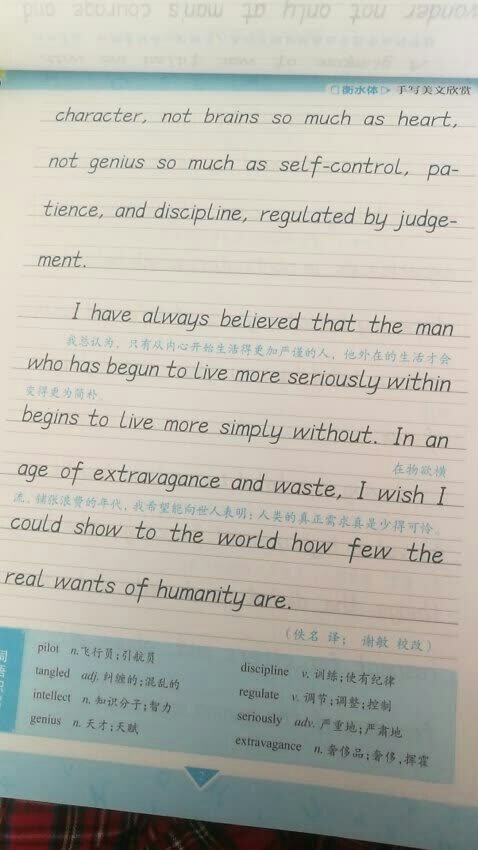 wonder not only at man's courage and
衡水体 ▷ 手写美文欣赏
character, not brains so much as heart,
not genius so much as self-control, pa-
tience, and discipline, regulated by judge-
ment.
I have always believed that the man
我总认为，只有从内心开始生活得更加严谨的人，他外在的生活才会
who has begun to live more seriously within
变得更为简朴。
begins to live more simply without. In an
在物欲横
age of extravagance and waste, I wish I
流、铺张浪费的年代，我希望能向世人表明：人类的真正需求真是少得可怜。
could show to the world how few the
real wants of humanity are.
（佚名 译； 谢敏 校改）
pilot n.飞行员;引航员
tangled adj.纠缠的;混乱的
intellect n.知识分子;智力
genius n.天才;天赋
discipline v.训练;使有纪律
regulate v.调节;调整;控制
seriously adv.严重地;严肃地
extravagance n.奢侈品;奢侈,挥霍
2